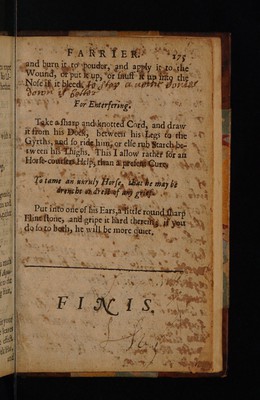 FARRIER. 275
and burn it to pouder, and apply it to the
Wound, or put it up, or snuff it up into the
Nose if it bleed. to stop a
down it
For Enterfering.
Take a sharp and knotted Cord, and draw
it from his Dock, between his Legs to the
Gyrths, and so ride him, or else rub Starch be-
tween his Thighs. This I allow rather for an
Horse-coursers Help, than a present Cure.
To tame an unruly Horse, that he may be
drencht or drest of any grief.
Put into one of his Ears, a little round sharp
Flint stone, and gripe it hard therein; if you
do so to both, he will be more quiet.
FINIS.